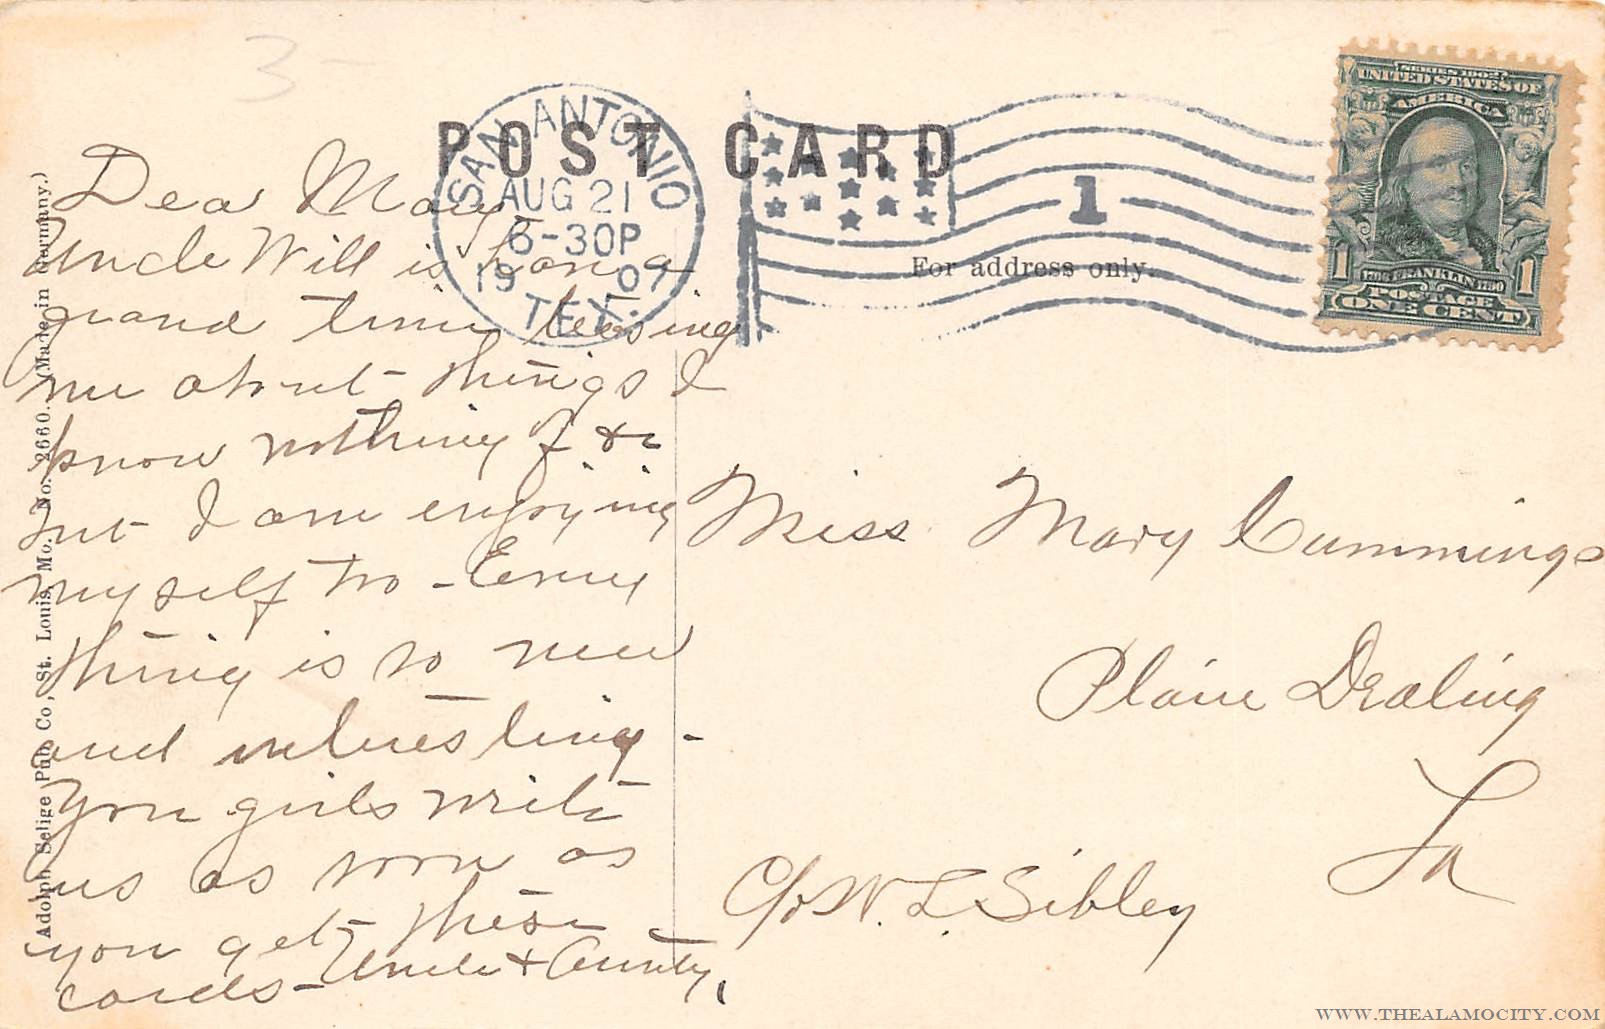 3-
POST CARD
SAN ANTONIO
AUG 21
6-30P
1907
TEX.
1
For address only.
SERIES 1902
UNITED STATES OF
AMERICA
1706 FRANKLIN 1790
1 POSTAGE 1
ONE CENT
Dear Mary
Uncle Will is having a
grand time teasing
me about things I
know nothing of &c
but I am enjoying
myself too - Every
thing is so new
and interesting -
You girls write
us as soon as
you get these
cards - Uncle & Aunty,
Miss Mary Cummings
Plain Dealing
La
C/o W. L. Sibley
(Adolph Selige Pub. Co., St. Louis, Mo. No. 2660. (Made in Germany.)
WWW.THEALAMOCITY.COM